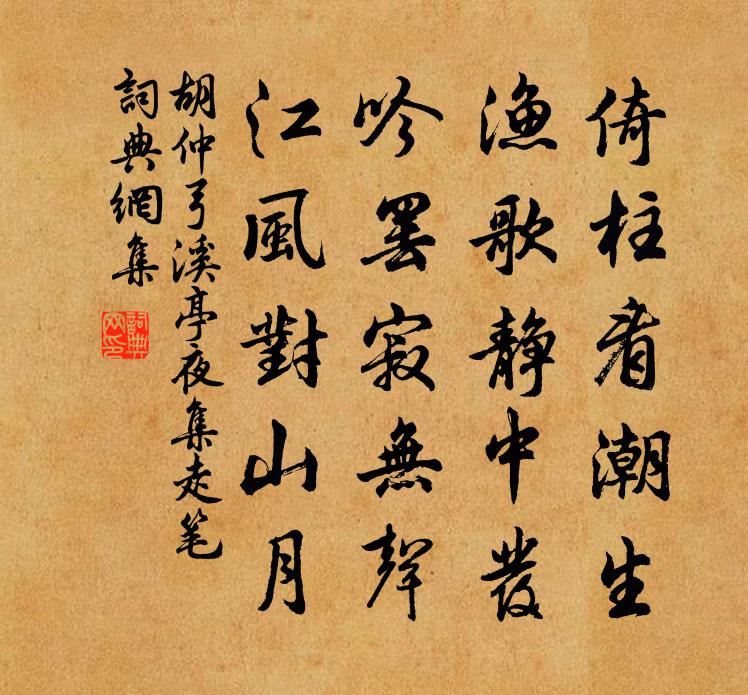 倚柱看潮生
漁歌静中發
吟罷寂無聲
江風對山月
胡仲弓溪亭夜集走笔
詞典網集
詞典網印